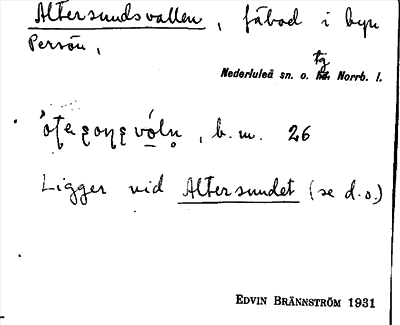 Altersundsvallen, fäbod i byn
Persön,
tg
Nederluleå sn. o. hd. Norrb. l.
, b. m. 26
Ligger vid Altersundet (se d.o.)
EDVIN BRÄNNSTRÖM 1931